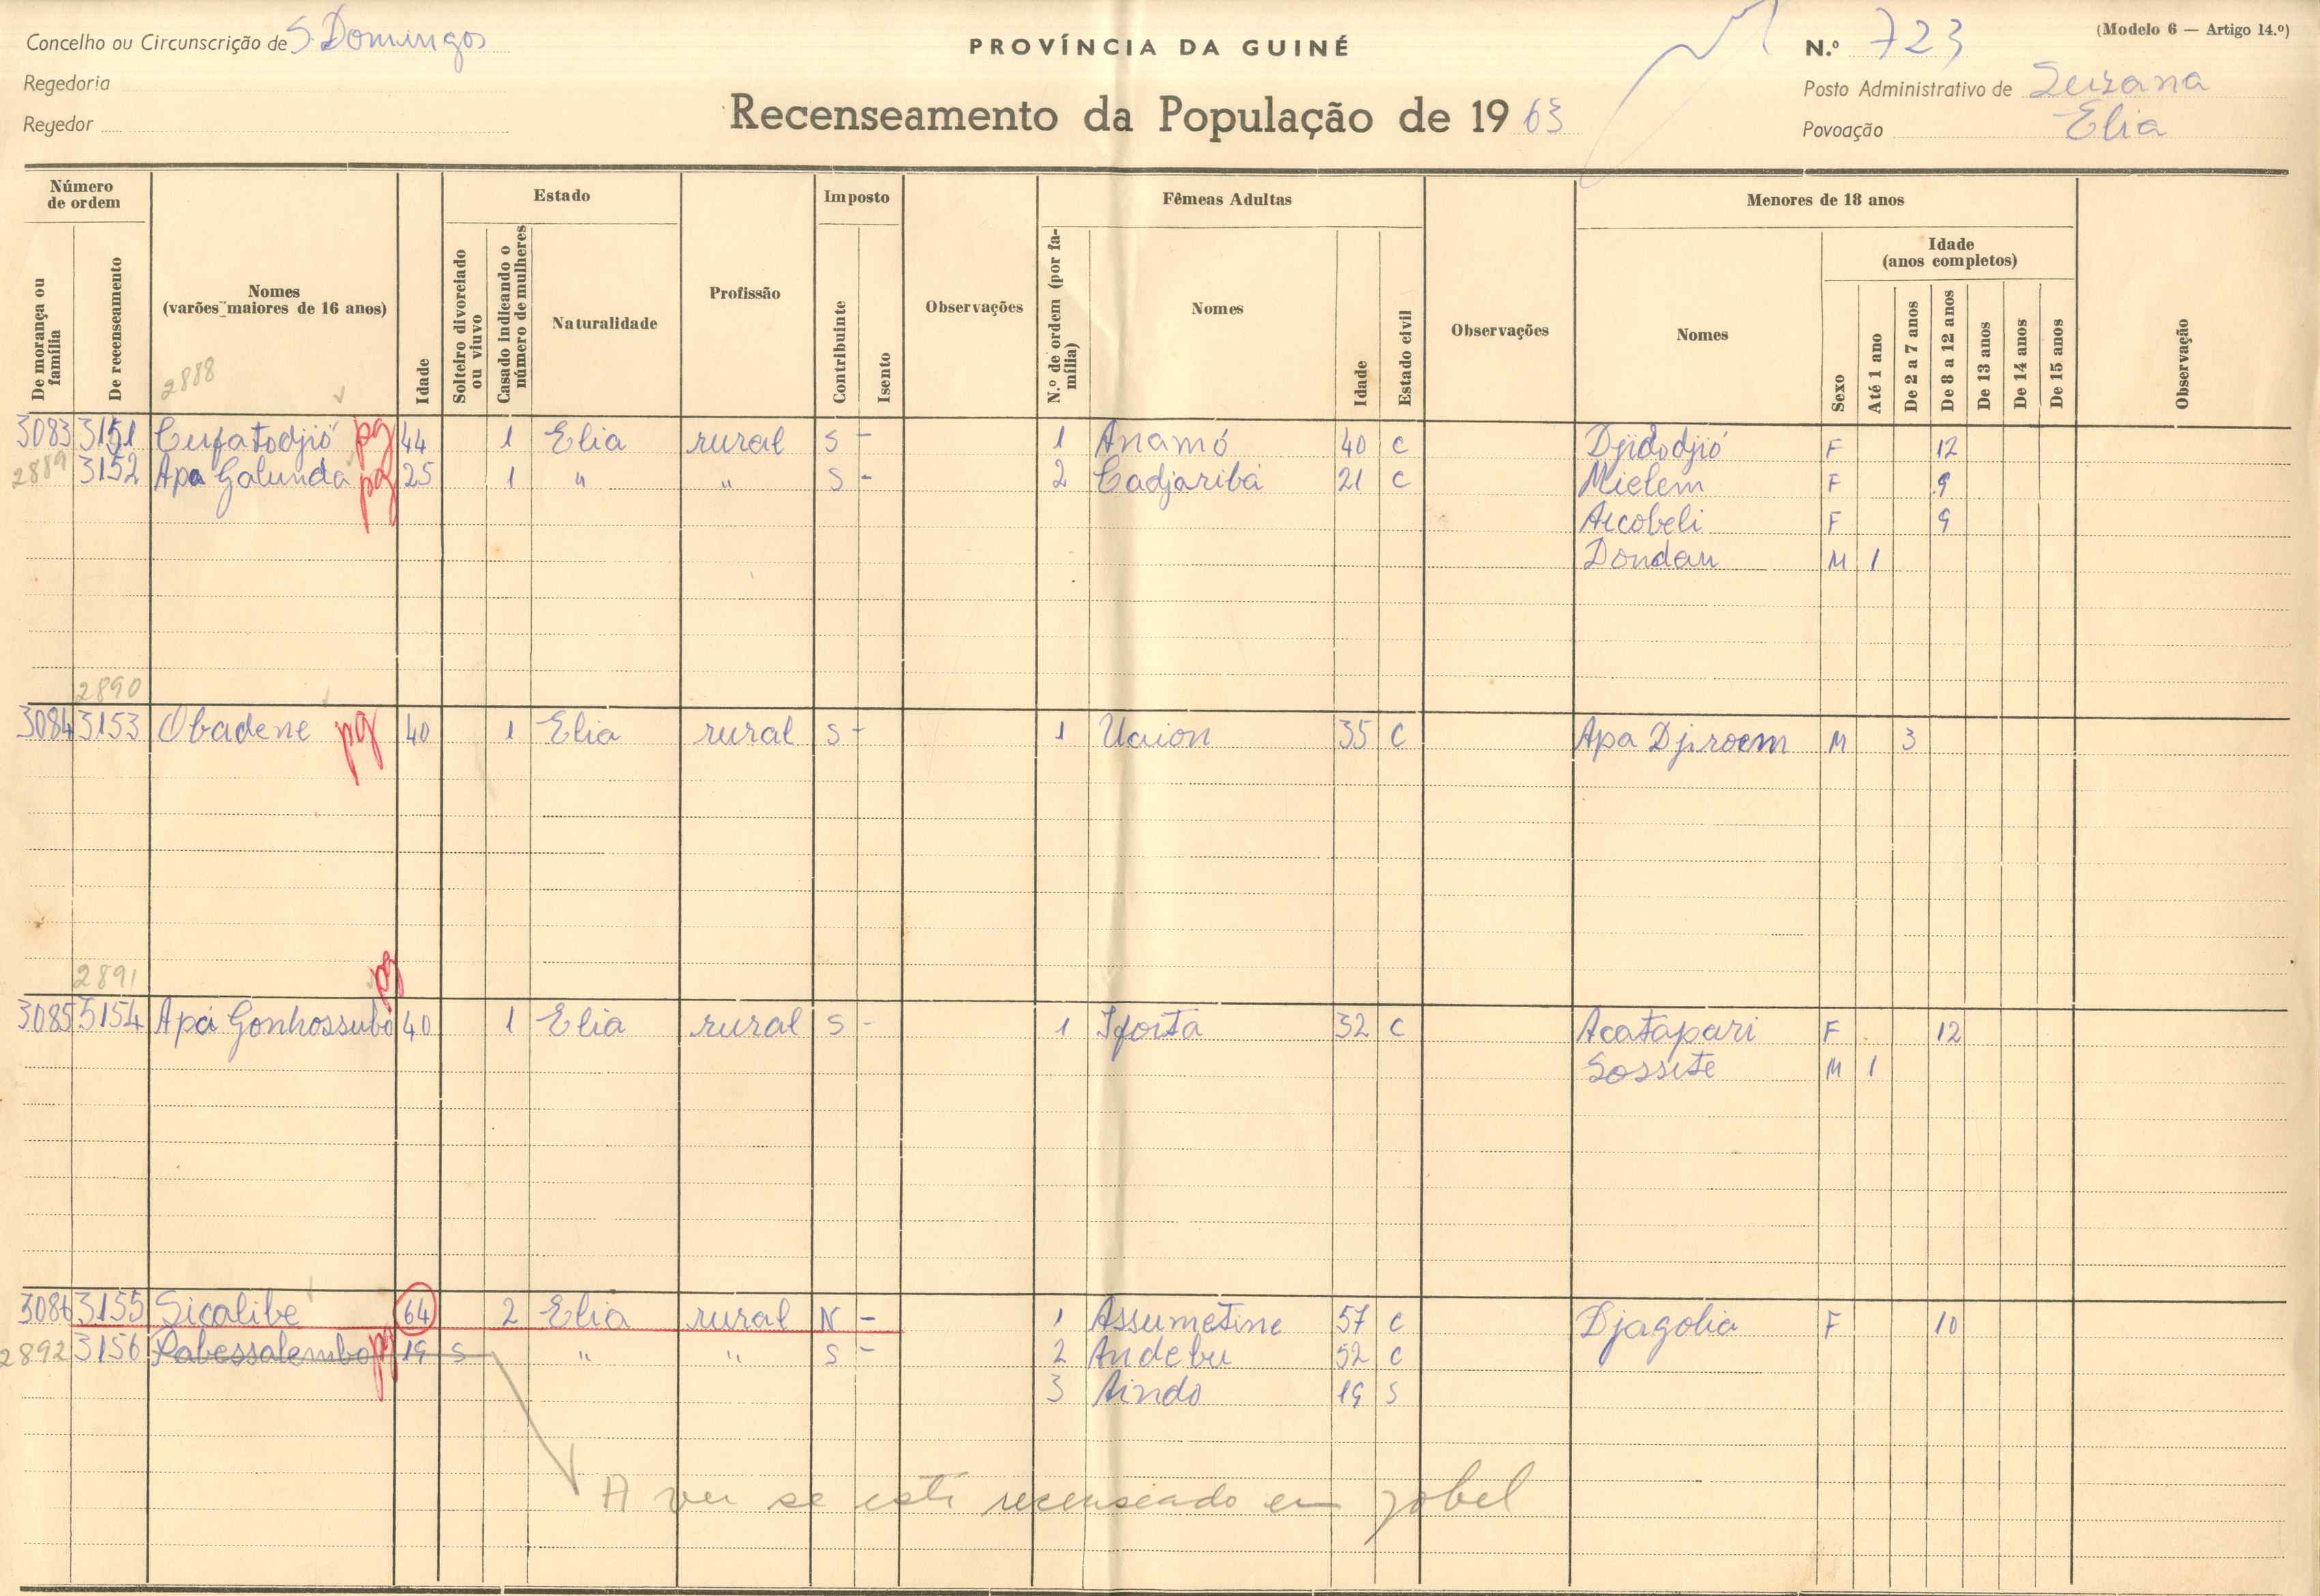 Concelho ou Circunscrição de S. Domingos
Regedoria
Regedor
PROVÍNCIA DA GUINÉ
Recenseamento da População de 1963
(Modelo 6 — Artigo 14.º)
N.º 723
Posto Administrativo de Suzana
Povoação Elia
Número de ordem
De morança ou família
De recenseamento
Nomes (varões maiores de 16 anos)
2888
Idade
Estado
Solteiro divorciado ou viuvo
Casado indicando o número de mulheres
Naturalidade
Profissão
Imposto
Contribuinte
Isento
Observações
N.º de ordem (por família)
Fêmeas Adultas
Nomes
Idade
Estado civil
Observações
Menores de 18 anos
Nomes
Sexo
Idade (anos completos)
Até 1 ano
De 2 a 7 anos
De 8 a 12 anos
De 13 anos
De 14 anos
De 15 anos
Observação
3083 3151 Cufatodjió pg 44 1 Elia rural S - 1 Anamó 40 C Djidodjió F 12
2889 3152 Apa Galunda pg 25 1 " " S - 2 Cadjaribá 21 C Mielem F 9
Aicobeli F 9
Dondau M 1
2890
3084 3153 Obadene pg 40 1 Elia rural S - 1 Uaion 35 C Apa Djiroem M 3
2891 pg
3085 3154 Apá Gonhossubó 40 1 Elia rural S - 1 Iforta 32 C Acatapari F 12
Sossite M 1
3086 3155 Sicalibe 64 2 Elia rural N - 1 Assumetine 57 C Djagolia F 10
2892 3156 Pabessalembo pg 19 S " " S - 2 Andebu 52 C
3 Aindo 19 S
A ver se está recenseado em Jobel